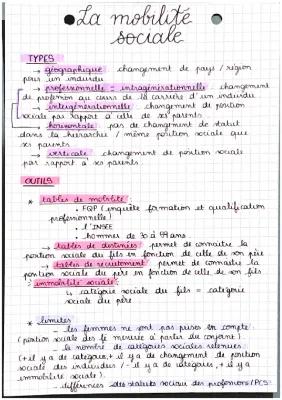 La mobilité
sociale
TYPES
→ géographique : changement de pays / région
pour un individu
→ professionnelle = intragénérationnelle : changement
de profession au cours de la carrière d'un individu
→ intergénérationnelle : changement de position
sociale par rapport à celle de ses parents
→ horizontale : pas de changement de statut
dans la hiérarchie / même position sociale que
ses parents
→ verticale : changement de position sociale
par rapport à ses parents.
OUTILS
* tables de mobilité :
• FQP (enquête formation et qualification
professionnelle)
• l'INSEE
• hommes de 30 à 59 ans
→ tables de destinées : permet de connaître la
position sociale du fils en fonction de celle de son père
→ tables de recrutement : permet de connaître la
position sociale du père en fonction de celle de son fils
: immobilité sociale :
↳ catégorie sociale du fils = catégorie
sociale du père
* limites :
- les femmes ne sont pas prises en compte
(position sociale des fe mesurée à partir du conjoint)
- le nombre de catégories sociales retenues
(+ il y a de catégories, + il y a de changement de position
sociale des individus / - il y a de catégories, + il y a
immobilité sociale)
- différences des statuts sociaux des professions/PCS